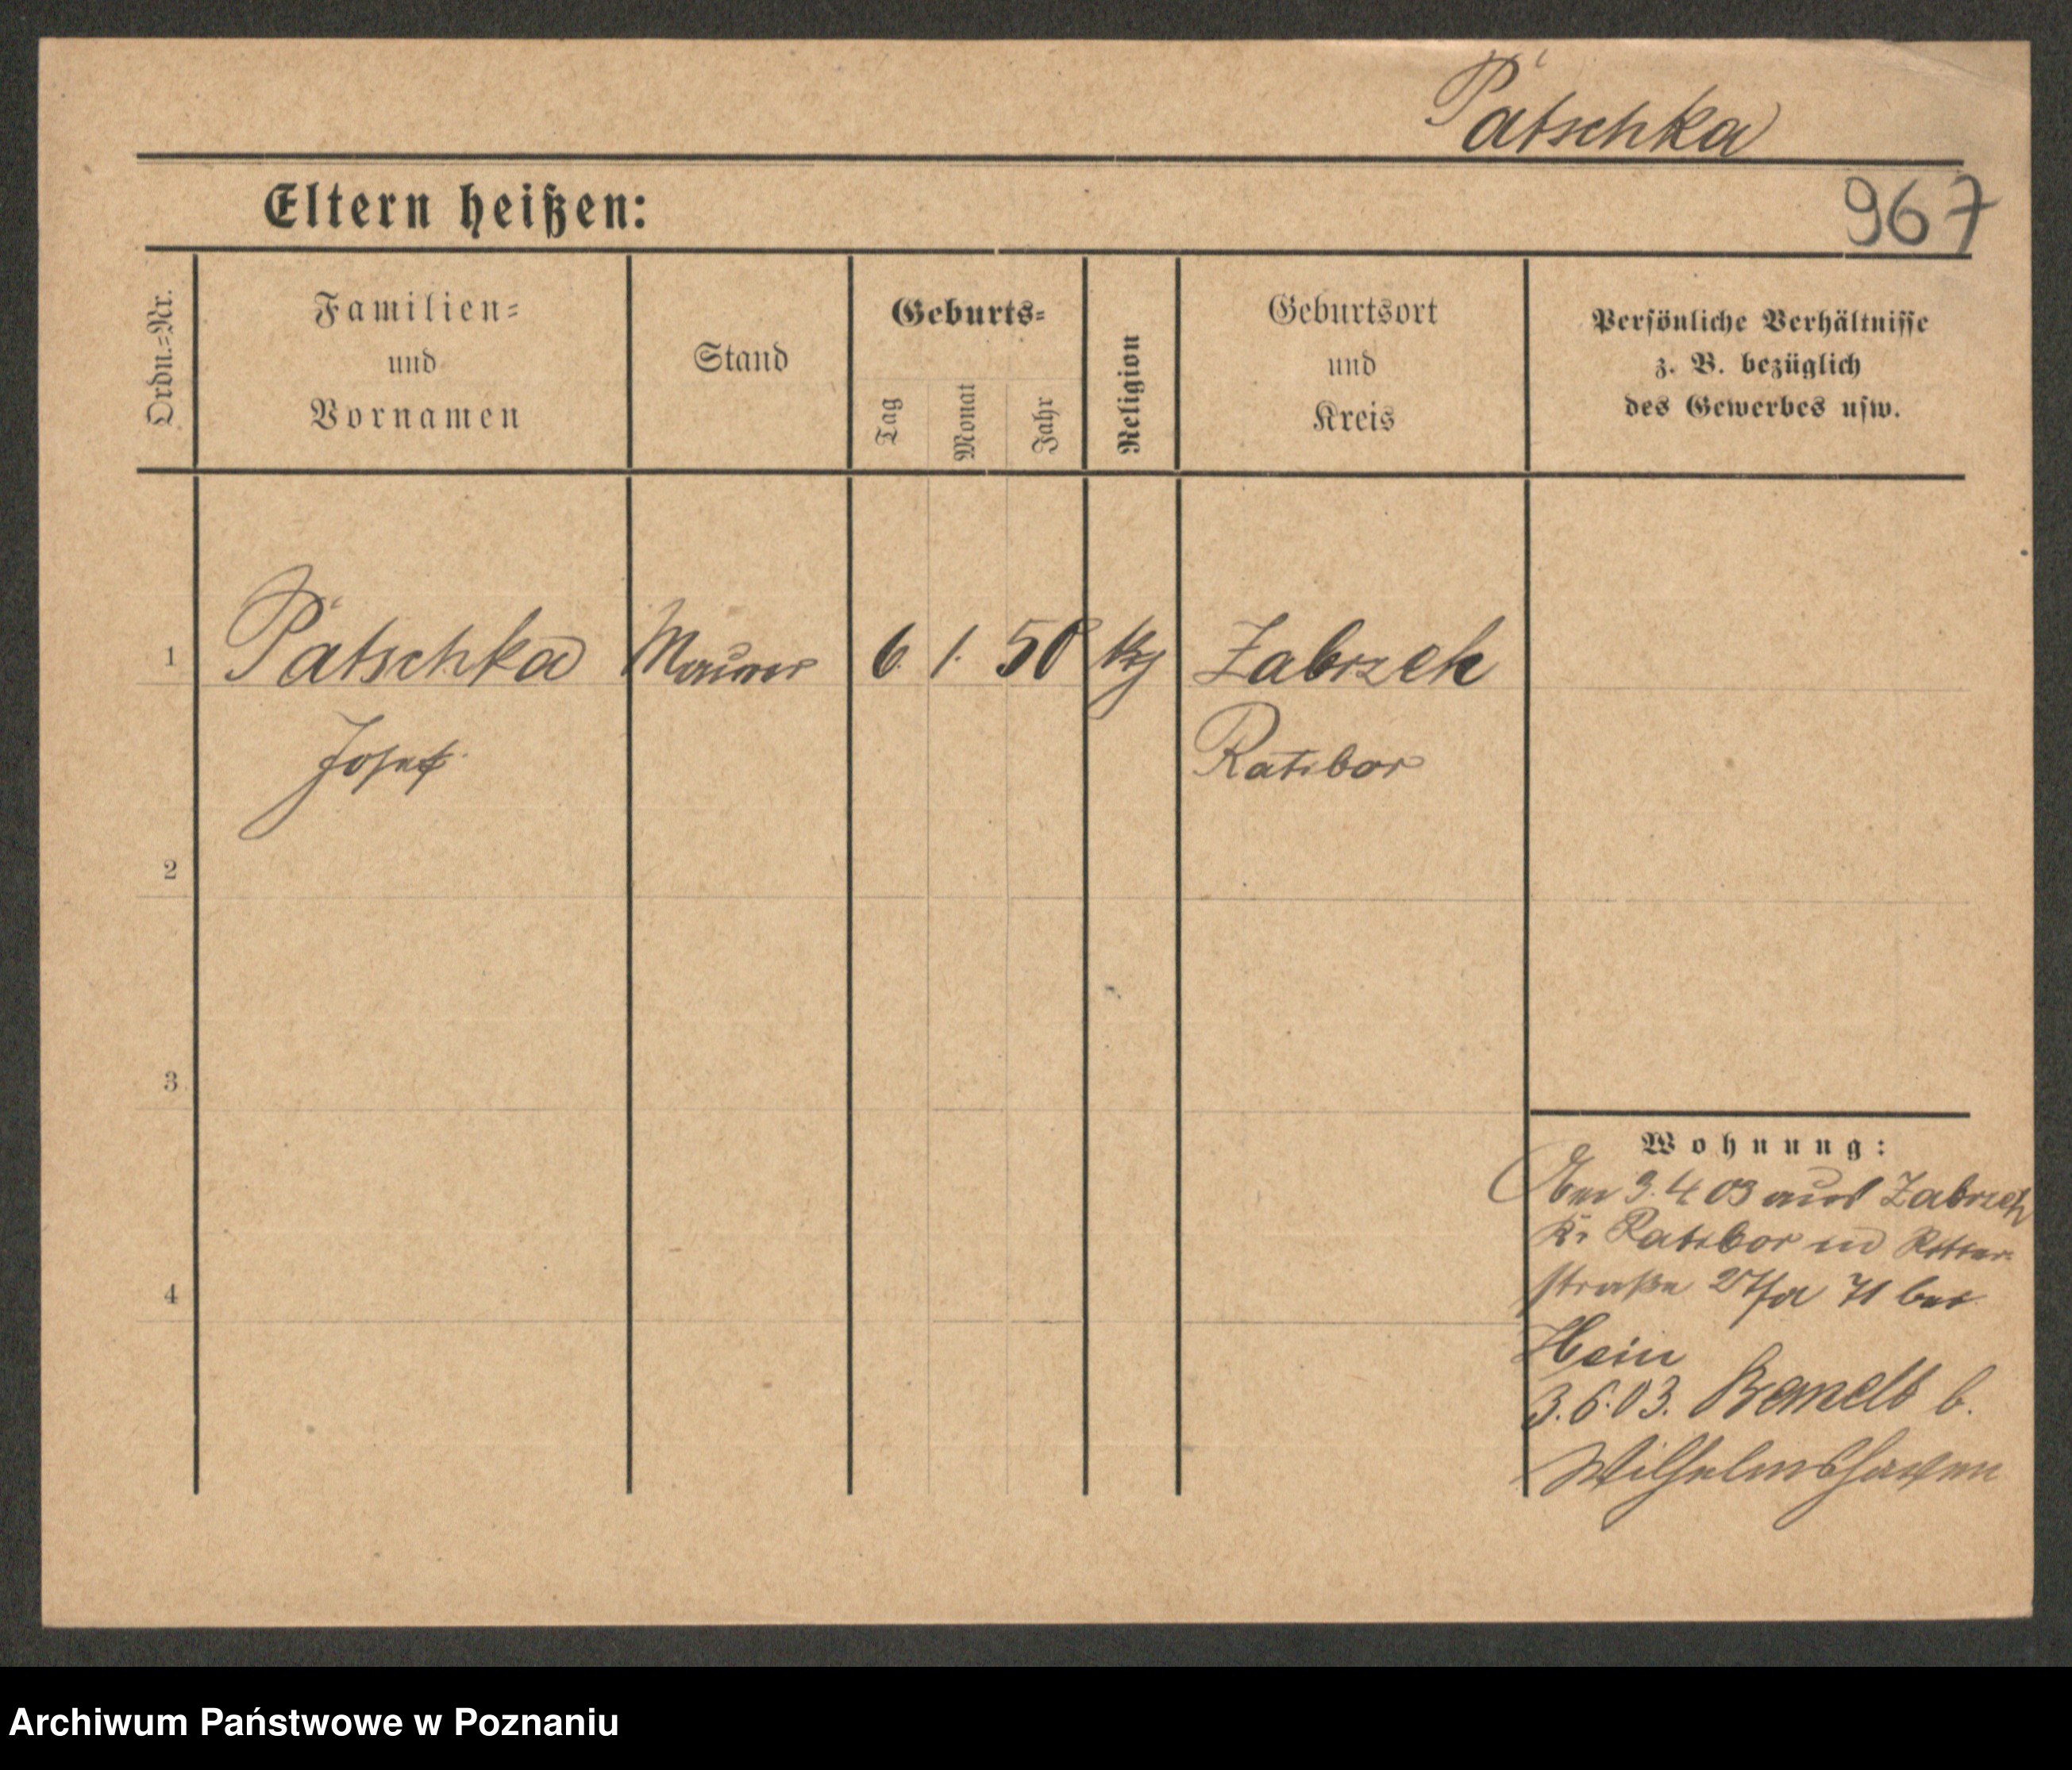 Patschka
967
Eltern heißen:
Ordn.-Nr.
Familien-
und
Vornamen
Stand
Geburts-
Tag
Monat
Jahr
Religion
Geburtsort
und
Kreis
Persönliche Verhältnisse
z. B. bezüglich
des Gewerbes usw.
1
Patschka
Maurer
6. 1. 50
Zabrzeh
Josef
Ratibor
2
3
4
Wohnung:
3. 4 03 aus Zabrzeh
Kr Ratibor in Ritter
straße 71 bei
Hein
3. 6. 03. b.
Wilhelmshaven
Archiwum Państwowe w Poznaniu